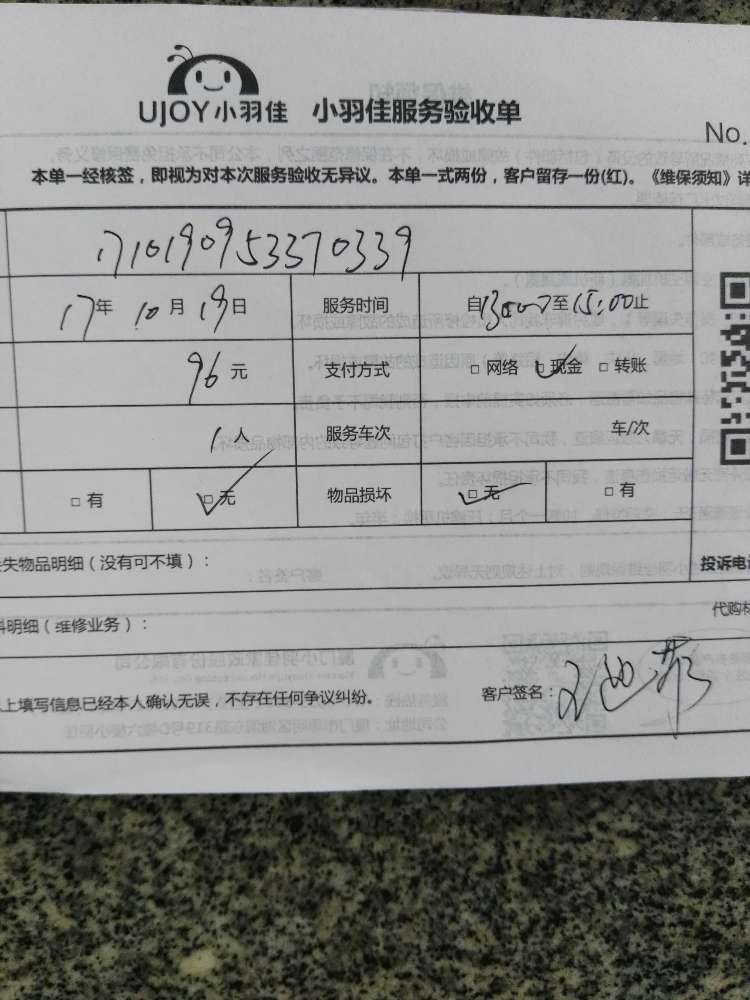 UJOY小羽佳 小羽佳服务验收单
No.
本单一经核签，即视为对本次服务验收无异议。本单一式两份，客户留存一份(红)。《维保须知》详
1710190953370339
17年 10月 19日 服务时间 自13:00至15:00止
96元 支付方式 □网络 □现金 □转账
1人 服务车次 车/次
□有 □无 物品损坏 □无 □有
失物品明细（没有可不填）： 投诉电话
料明细（维修业务）： 代购材
上填写信息已经本人确认无误，不存在任何争议纠纷。 客户签名：